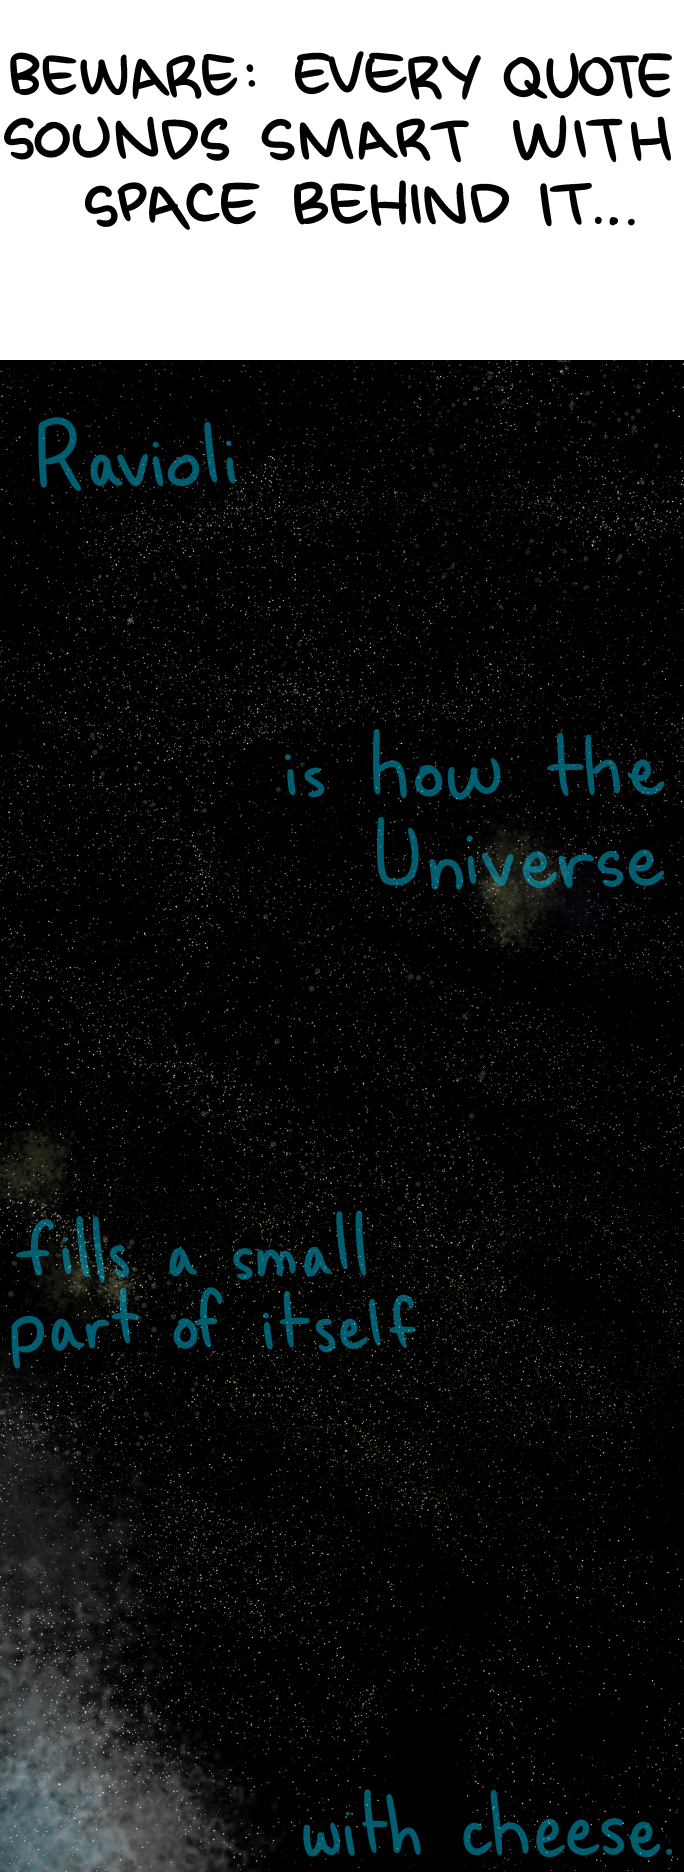 BEWARE: EVERY QUOTE
SOUNDS SMART WITH
SPACE BEHIND IT...
Ravioli
is how the
Universe
fills a small
part of itself
with cheese.